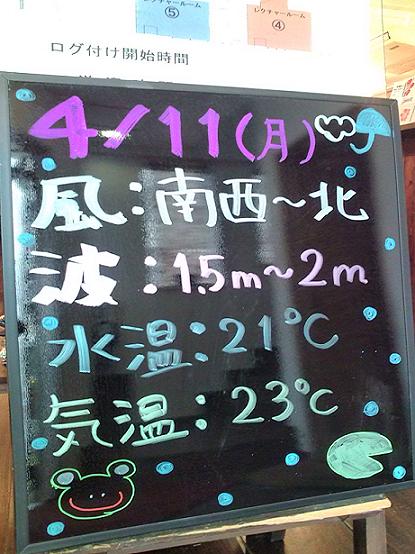 レクチャールーム
⑤
レクチャールーム
④
ログ付け開始時間
4/11(月)
風:南西~北
波:1.5m~2m
水温:21℃
気温:23℃